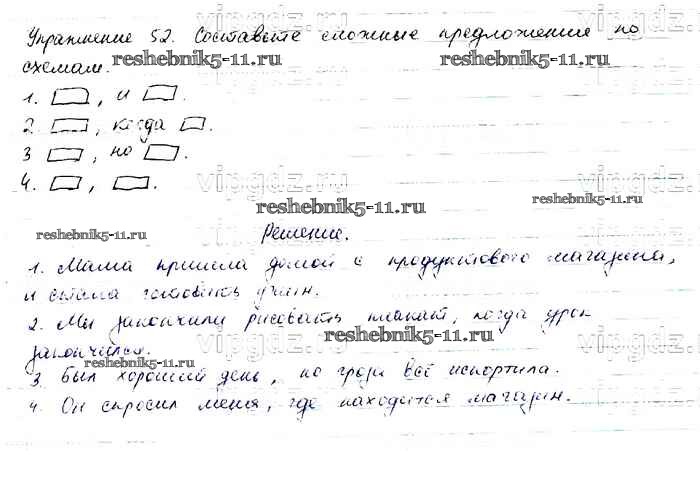 Упражнение 52. Составьте сложные предложения по
схемам.
1. , и .
2. , когда .
3 , но .
4. , .
Решение.
1. Мама пришла домой с продуктового магазина,
и стала готовить ужин.
2. Мы закончили рисовать плакат, когда урок
закончился.
3. Был хороший день, но гроза всё испортила.
4. Он спросил меня, где находится магазин.
vipgdz.ru
reshebnik5-11.ru
reshebnik5-11.ru
vipgdz.ru
vipgdz.ru
reshebnik5-11.ru
reshebnik5-11.ru
reshebnik5-11.ru
reshebnik5-11.ru
vipgdz.ru
vipgdz.ru
reshebnik5-11.ru